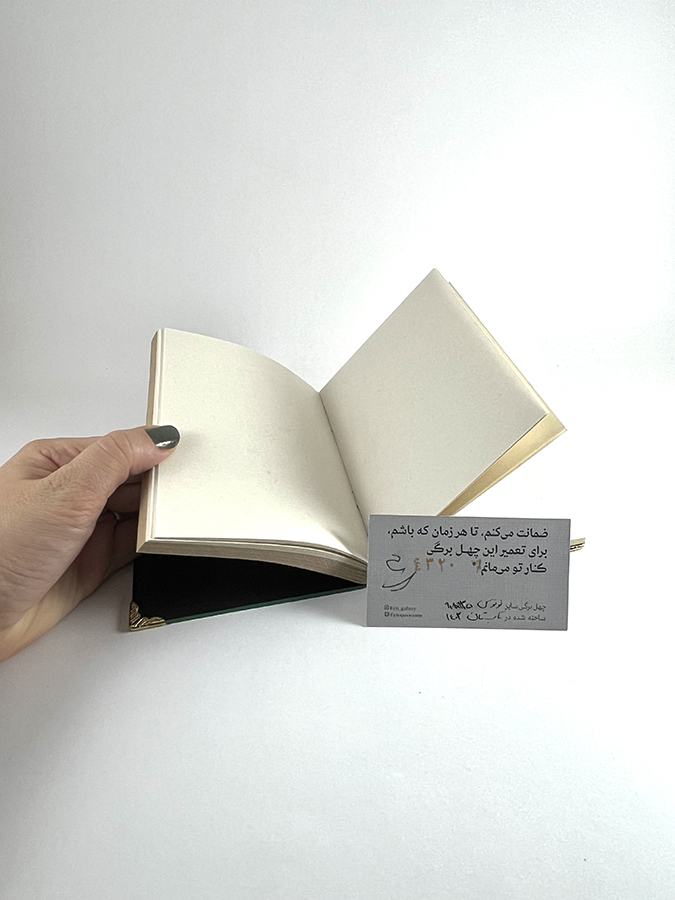 ضمانت می‌کنم، تا هر زمان که باشم،
برای تعمیر این چهل برگی
کنار تو می‌مانم
٤٣٢٠
چهل برگی سایز
ساخته شده در تابستان ١٤٠٣